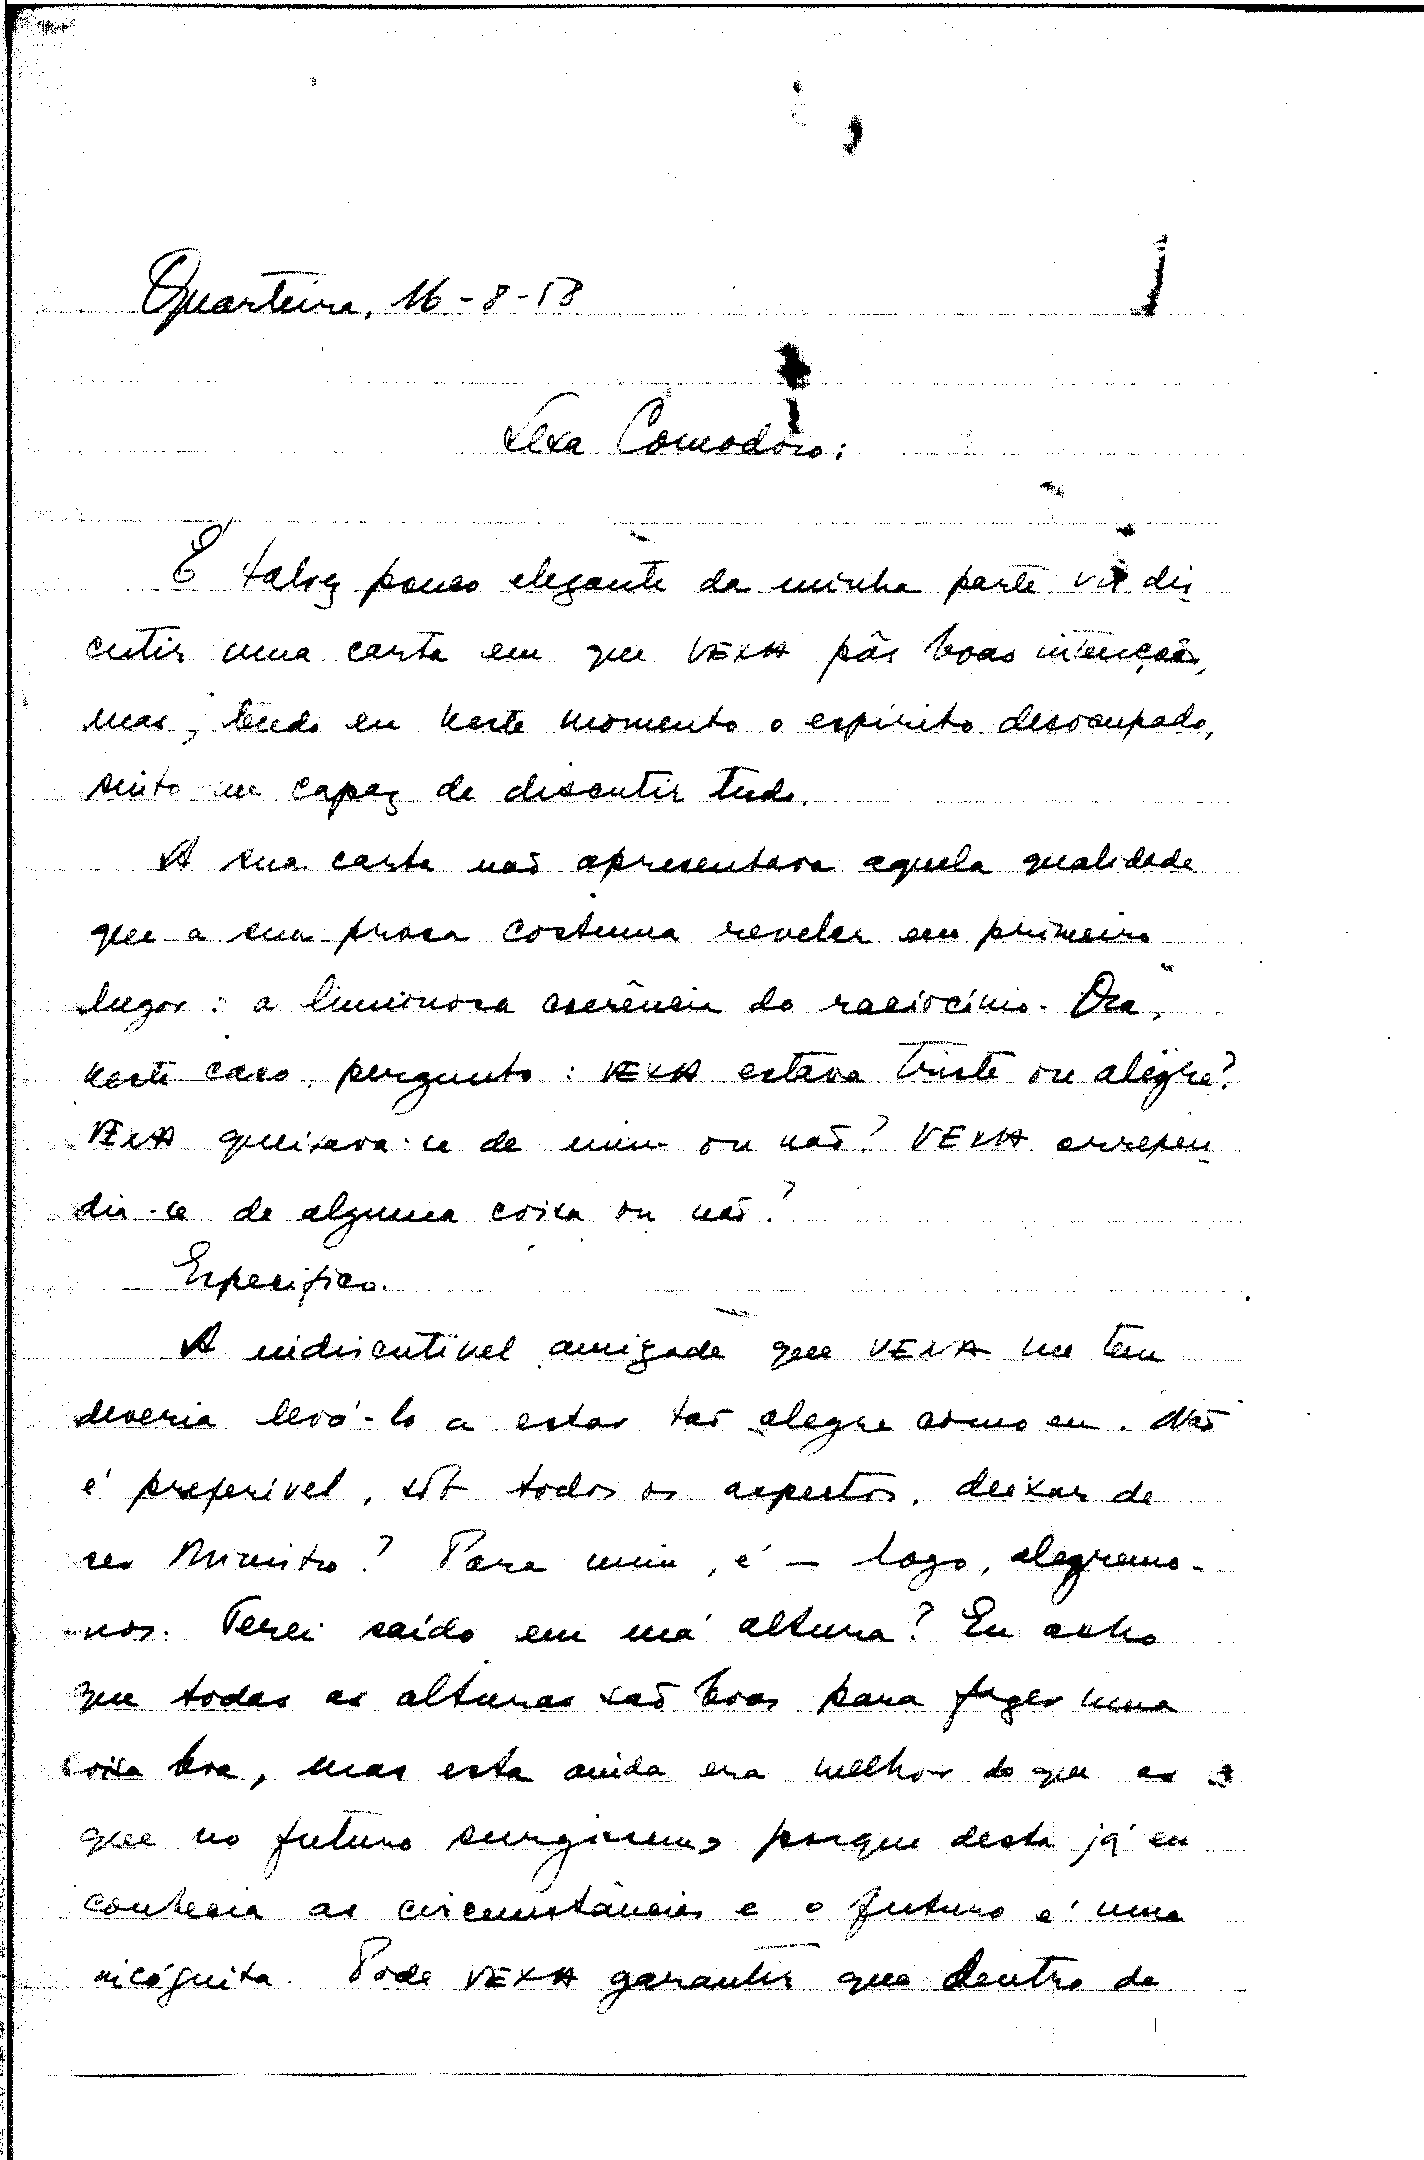 Quarteira, 16-8-58
Lexa Comodoro:
É talvez pouco elegante da minha parte vir dis
cutir uma carta em que VEXA pôs boas intenções,
mas, tendo eu neste momento o espírito desocupado,
sinto me capaz de discutir tudo.
A sua carta não apresentava aquela qualidade
que a sua prosa costuma revelar em primeiro
lugar: a luminosa coerência do raciocínio. Ora,
neste caso, pergunto: VEXA estava triste ou alegre?
VEXA queixava-se de mim ou não? VEXA arrepen
dia-se de alguma coisa ou não?
Especifico.
A indiscutível amizade que VEXA me tem
deveria levá-lo a estar tão alegre como eu. Não
é preferível, sob todos os aspectos, deixar de
ser Ministro? Para mim, é — logo, alegremo-
-nos. Terei saído em má altura? Eu acho
que todas as alturas são boas para fazer uma
coisa boa, mas esta ainda era melhor do que as
que no futuro surgissem, porque desta já eu
conhecia as circunstâncias e o futuro é uma
incógnita. Pode VEXA garantir que dentro de